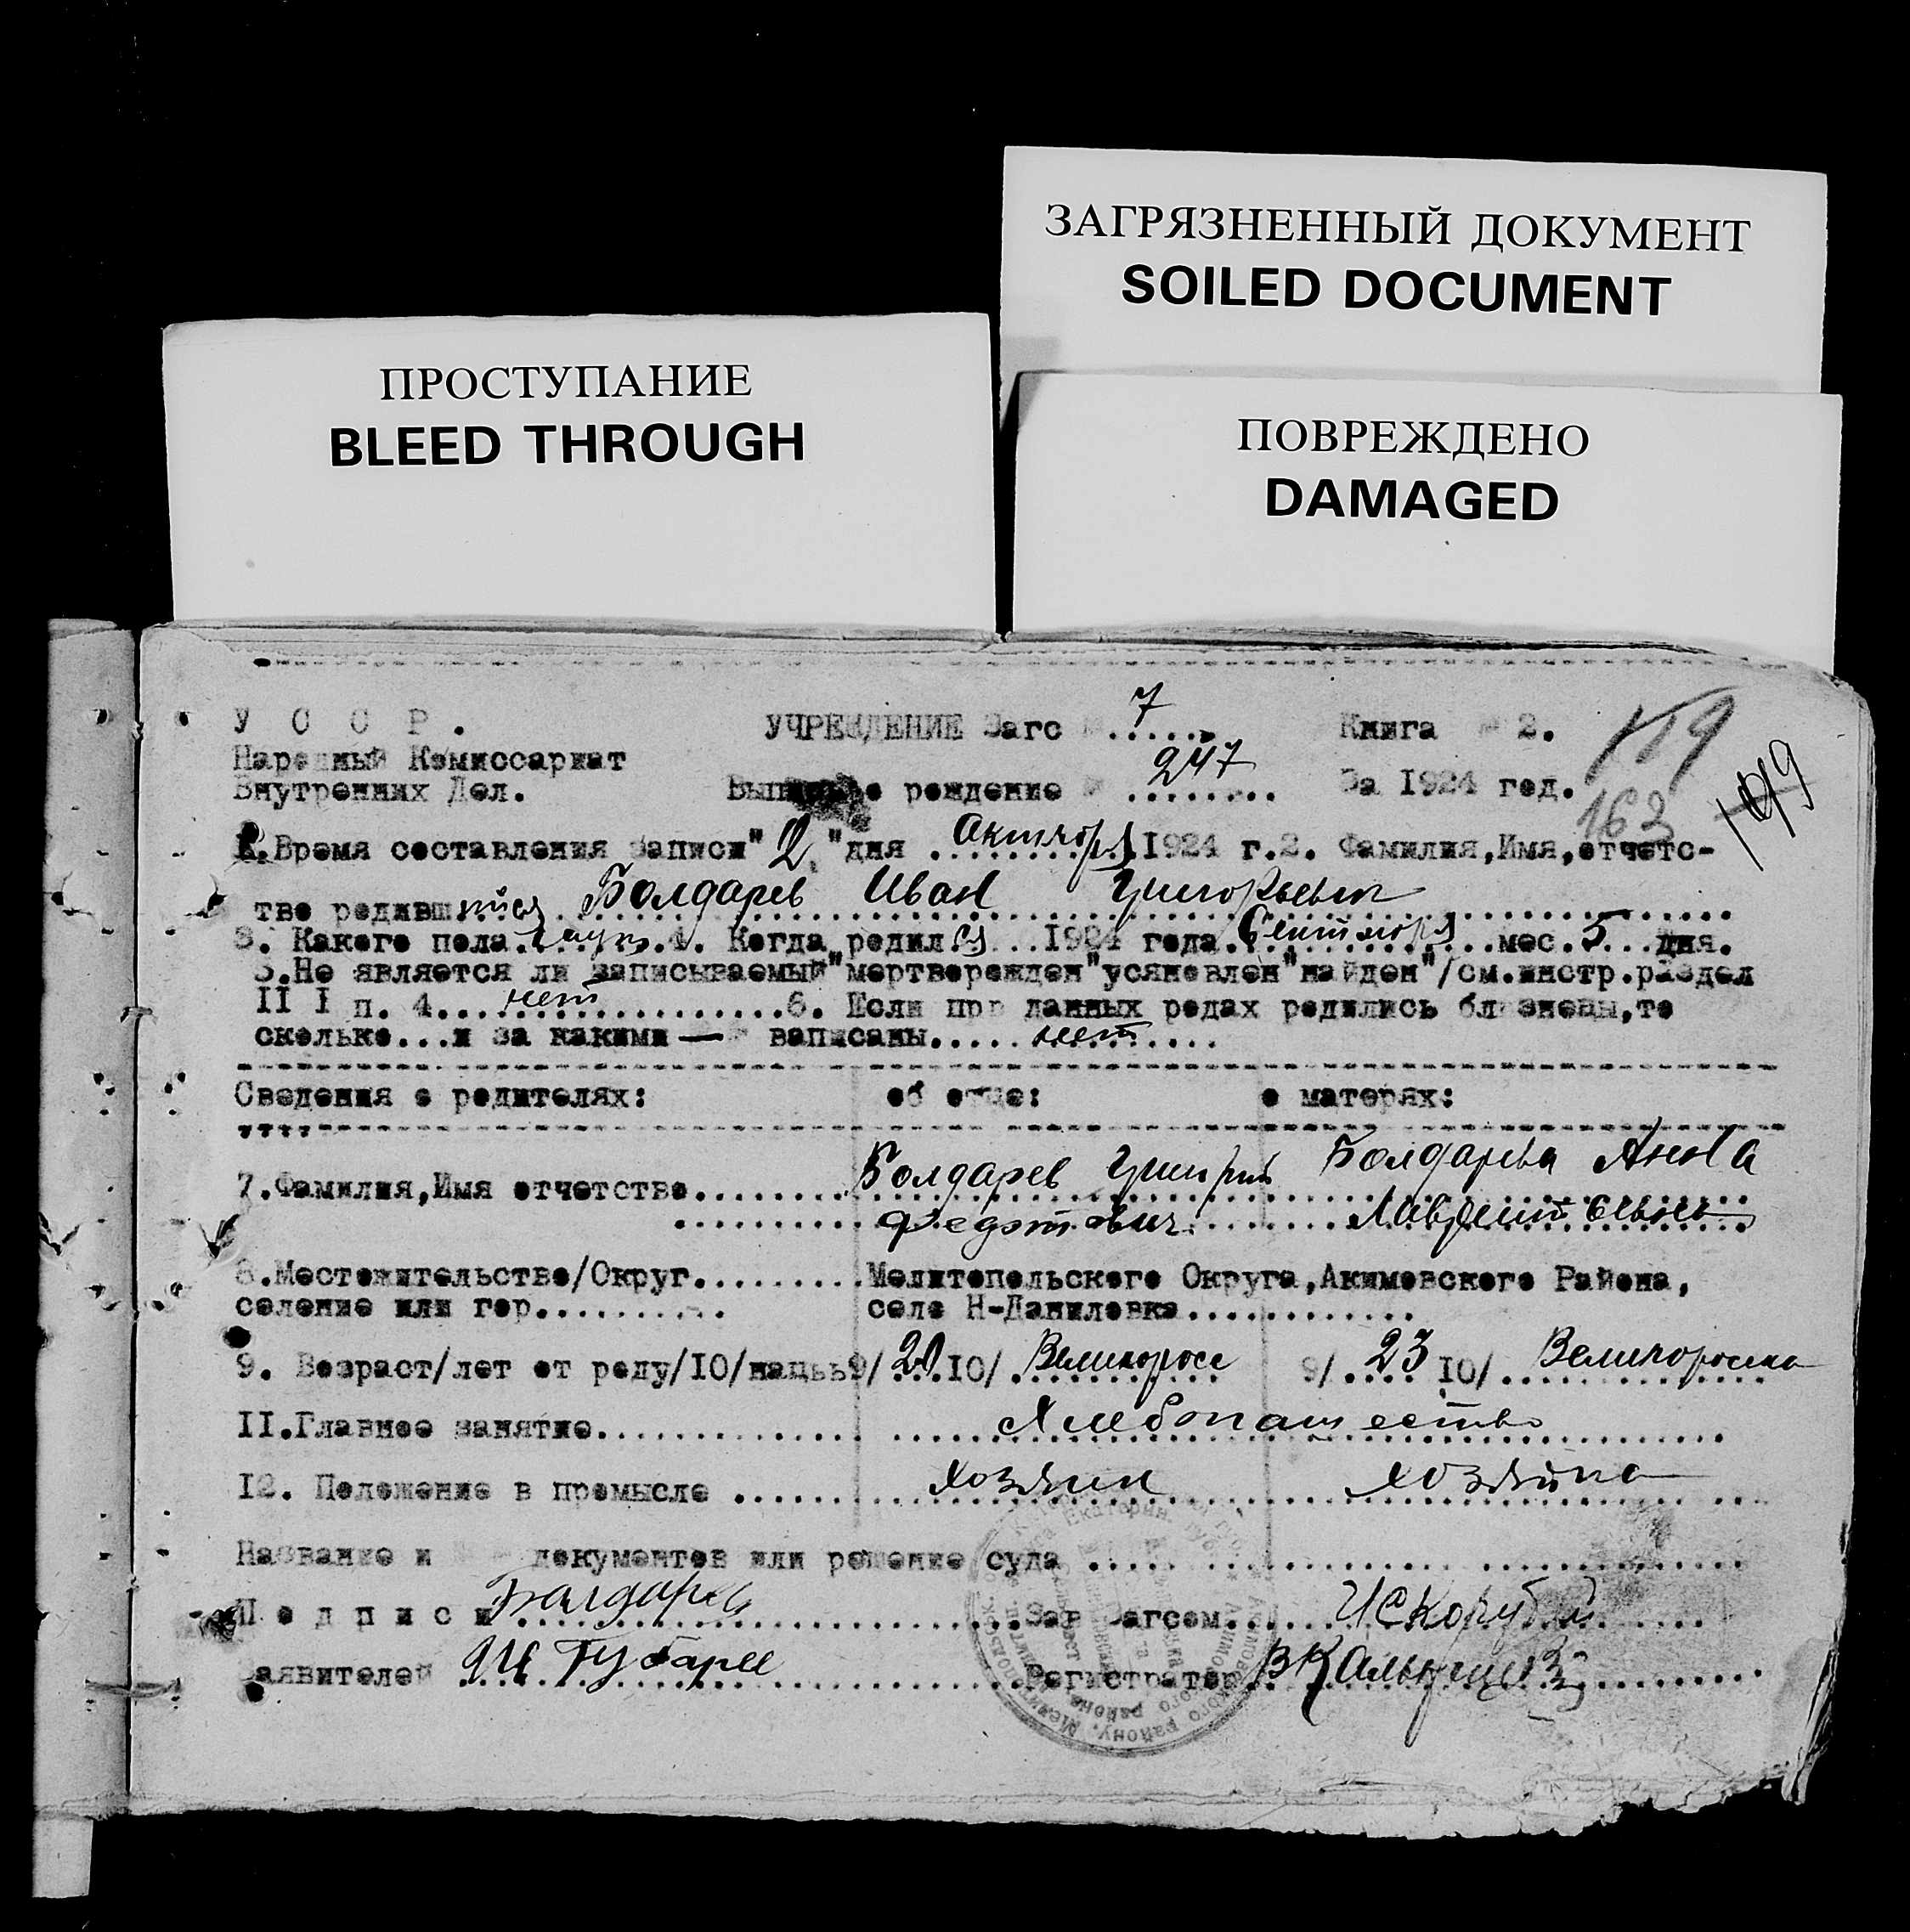 ЗАГРЯЗНЕННЫЙ ДОКУМЕНТ
SOILED DOCUMENT
ПРОСТУПАНИЕ
BLEED THROUGH
ПОВРЕЖДЕНО
DAMAGED
У С С Р. УЧРЕЖДЕНИЕ Загс 7 Книга 2. 159
Народный Комиссариат
Внутренних Дел. рождение 247 За 1924 год.
163
1.Время составления записи "2 "дня Октября 1924 г.2. Фамилия,Имя,отчетс-
тво родившийся Болдарев Иван Григорьевич
3. Какого пола 4. Когда родился 1924 года Сентября мес. 5 дня.
5.Не является ли записываемый"мертворожден"усяновлен"найден"/см.инстр.раздел
III п. 4 нет 6. Если при данных родах родились близнецы,то
сколько...и за какими — записаны..... нет
Сведения о родителях: об отце: о матерях:
7.Фамилия,Имя отчетство Болдарев Григорий Болдарева Анна
Федотович Лаврентьевна
8.Местожительство/Округ.........Мелитопольского Округа,Акимовского Района,
селение или гор.......... село Н-Даниловка............
9. Возраст/лет от роду/10/нацьь 9/ 20 10/ Великоросс 9/ 23 10/ Великороска
II.Главное занятие Хлебопашество
12. Положение в промысле Хозяин хозяйка
Название и документов или решение суда
Подписи Болдарев Зав Загсом
Заявителей Губарев Регистратор